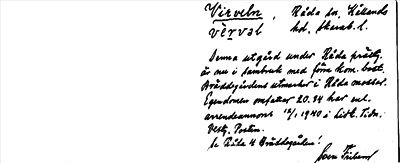 Virveln, Råda sn, Kållands
vę̀rvəl hd, Skarab. l.
Denna utgård under Råda prästg.
är nu i sambruk med förra kom. bost.
Bräddegårdens utmarker i Råda mosse.
Egendomen omfattar 20.34 har enl.
arrendeannons 12/1 1940 i Lidk. Tidn.
Vestg. Posten.
Se Råda 4 Bräddegården!
Sven